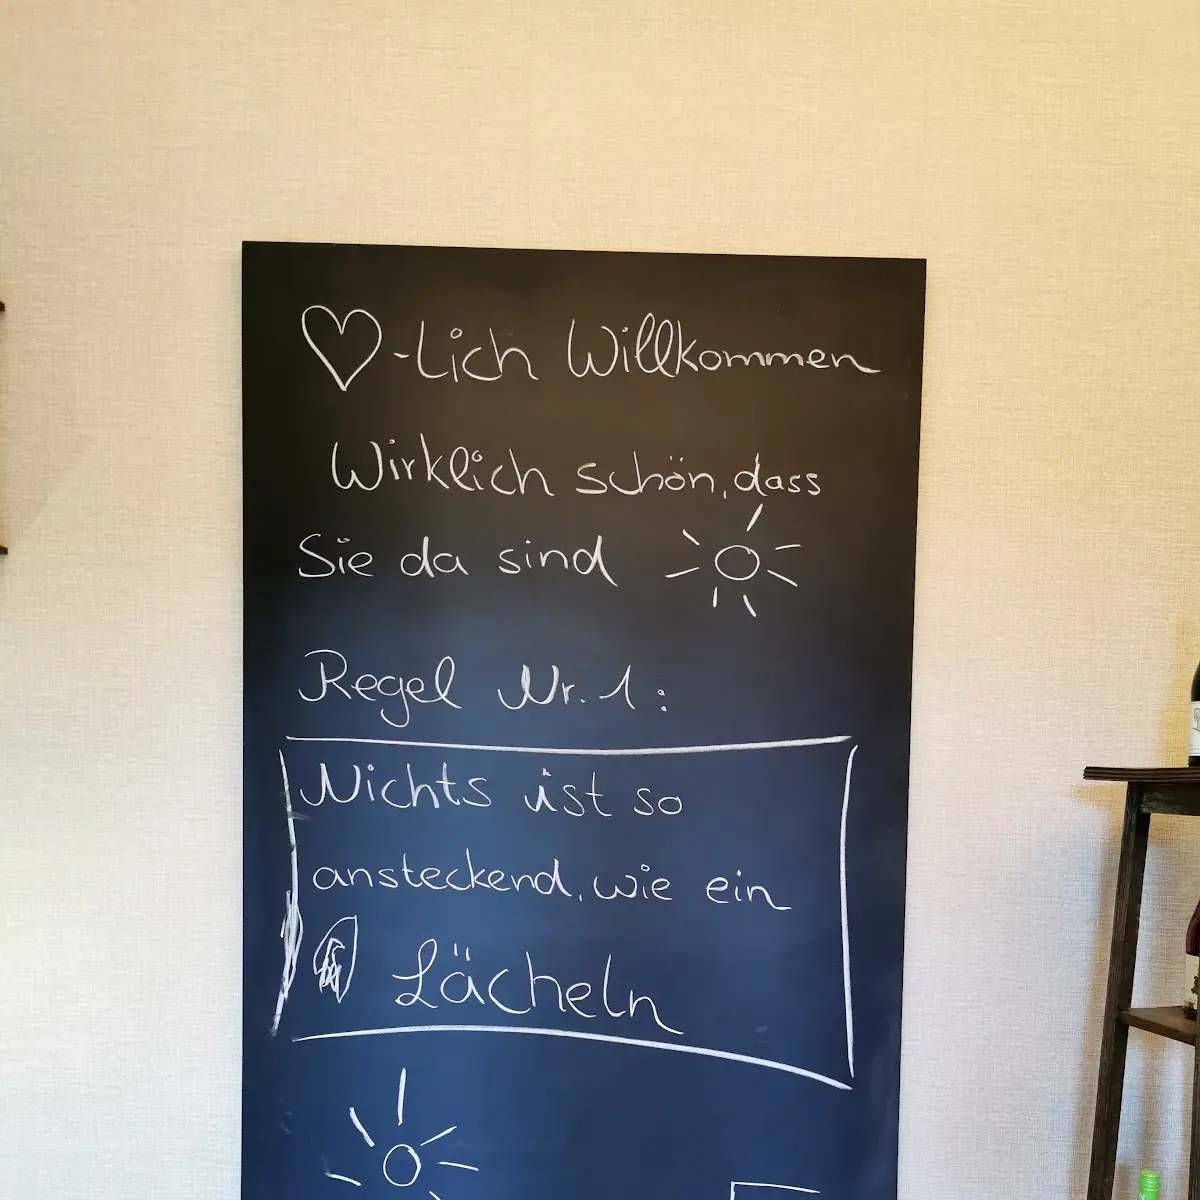 ♡-lich Willkommen
Wirklich schön, dass
Sie da sind
Regel Nr. 1:
Nichts ist so
ansteckend, wie ein
Lächeln